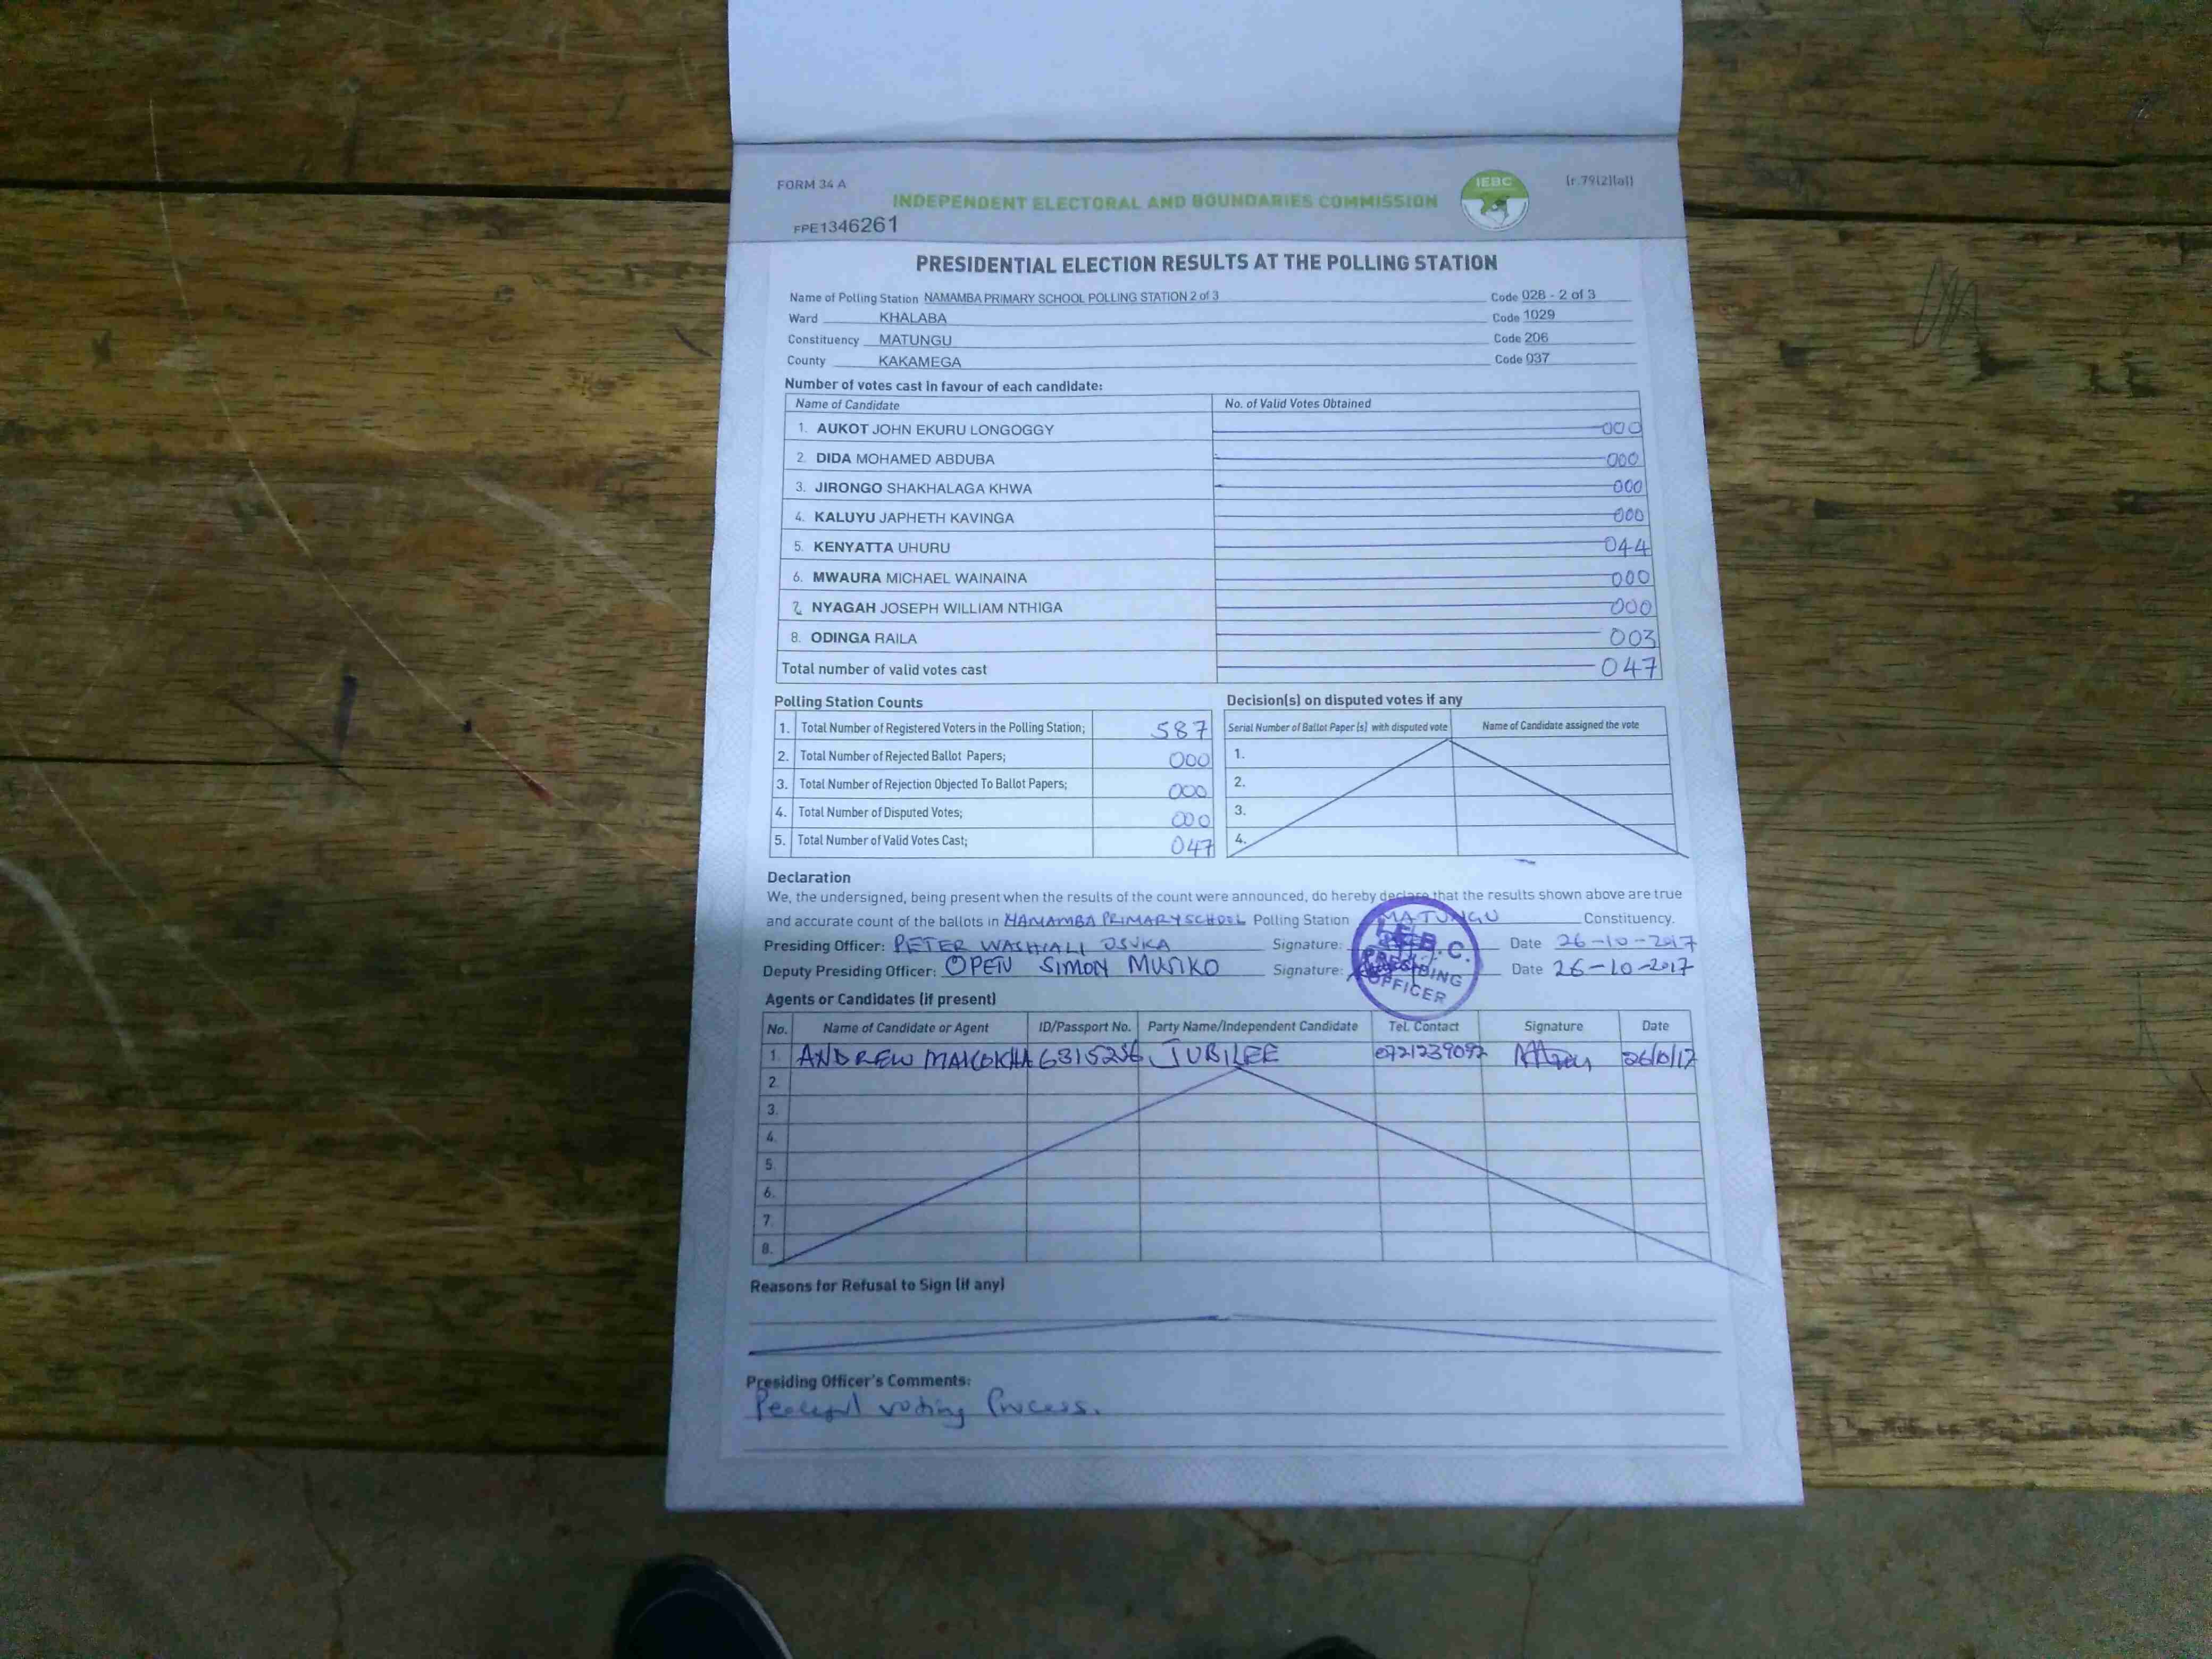 FORM 34 A
INDEPENDENT ELECTORAL AND BOUNDARIES COMMISSION
IEBC
(r.79(2)(a))
FPE1346261
PRESIDENTIAL ELECTION RESULTS AT THE POLLING STATION
Name of Polling Station NAMAMBA PRIMARY SCHOOL POLLING STATION 2 of 3 Code 028 - 2 of 3
Ward KHALABA Code 1029
Constituency MATUNGU Code 206
County KAKAMEGA Code 037
Number of votes cast in favour of each candidate:
Name of Candidate No. of Valid Votes Obtained
1. AUKOT JOHN EKURU LONGOGGY 000
2. DIDA MOHAMED ABDUBA 000
3. JIRONGO SHAKHALAGA KHWA 000
4. KALUYU JAPHETH KAVINGA 000
5. KENYATTA UHURU 044
6. MWAURA MICHAEL WAINAINA 000
7. NYAGAH JOSEPH WILLIAM NTHIGA 000
8. ODINGA RAILA 003
Total number of valid votes cast 047
Polling Station Counts
1. Total Number of Registered Voters in the Polling Station; 587
2. Total Number of Rejected Ballot Papers; 000
3. Total Number of Rejection Objected To Ballot Papers; 000
4. Total Number of Disputed Votes; 000
5. Total Number of Valid Votes Cast; 047
Decision(s) on disputed votes if any
Serial Number of Ballot Paper (s) with disputed vote Name of Candidate assigned the vote
1.
2.
3.
4.
Declaration
We, the undersigned, being present when the results of the count were announced, do hereby declare that the results shown above are true
and accurate count of the ballots in NAMAMBA PRIMARY SCHOOL Polling Station MATUNGU Constituency.
Presiding Officer: PETER WASHIALI OSUKA Signature: Date 26-10-2017
Deputy Presiding Officer: OPETU SIMON MUSIKO Signature: Date 26-10-2017
I.E.B.C.
PRESIDING
OFFICER
Agents or Candidates (if present)
No. Name of Candidate or Agent ID/Passport No. Party Name/Independent Candidate Tel. Contact Signature Date
1. ANDREW MAKOKHA 6315256 JUBILEE 0721239097 26/10/17
2.
3.
4.
5.
6.
7.
8.
Reasons for Refusal to Sign (if any)
Presiding Officer's Comments:
Peaceful voting Process.